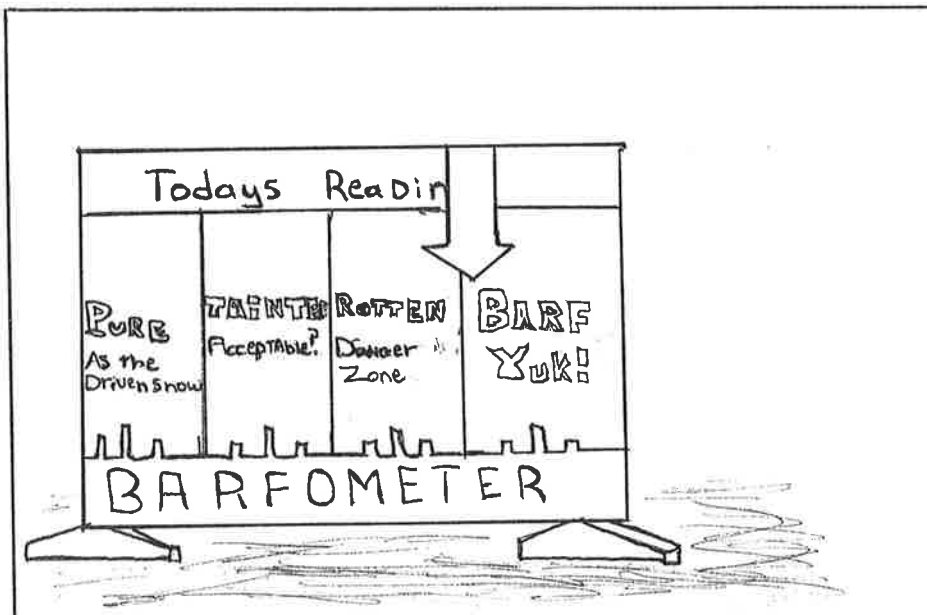 Todays Readin
PURE
As the
Driven snow
TAINTED
Acceptable?
ROTTEN
Danger
Zone
BARF
YUK!
BARFOMETER